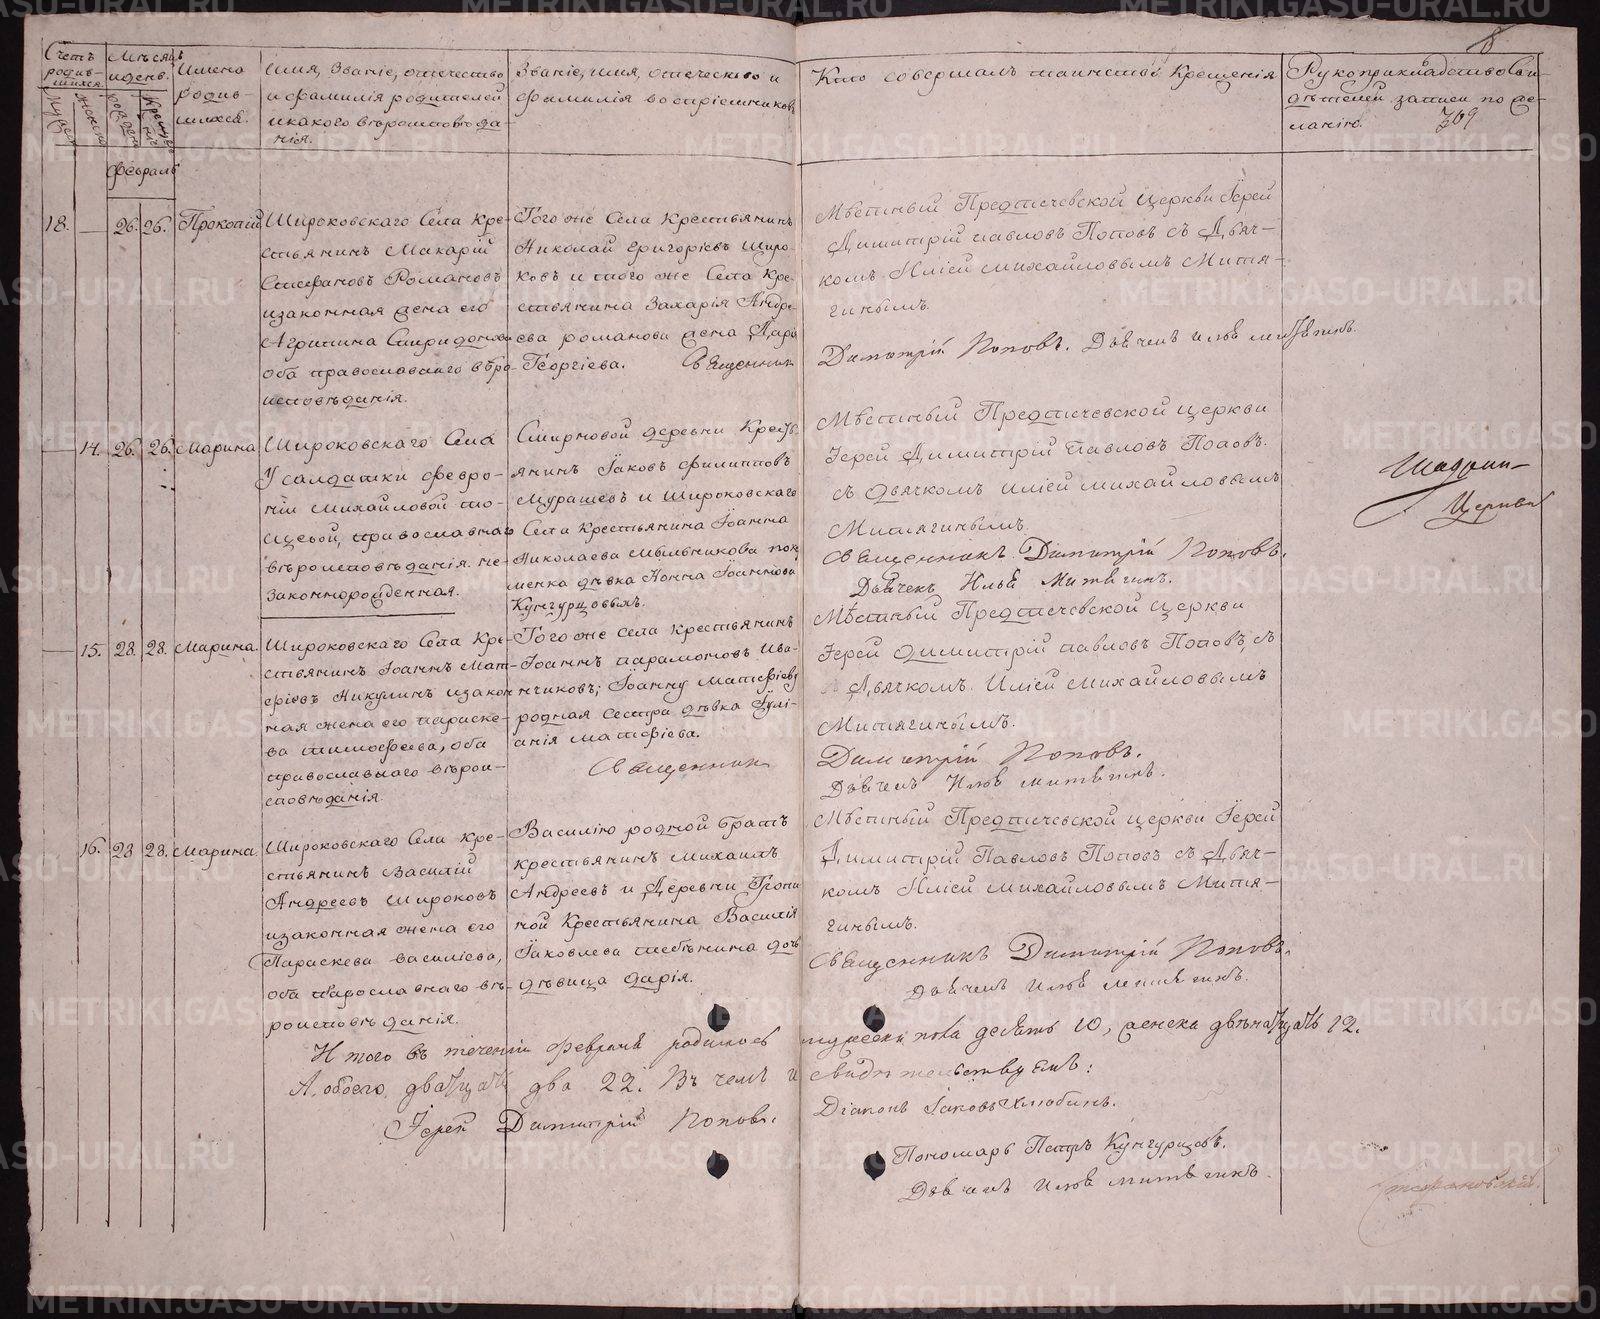 Счетъ родившихся
Мѣсяцъ и день.
Имена родившихся.
Имя, Званіе, отечество
и фамилія родителей
и какого вѣроисповѣда-
нія.
Званіе, имя, отечество и
фамилія воспріемниковъ
Кто совершалъ таинство Крещенія
Рукоприкладство сви-
дѣтелей записи по же-
ланію.
309
Февраль
18. — 26. 26. Прокопій
Широковскаго Села Кре-
стьянинъ Макарій
Стефановъ Романовъ
и законная жена его
Агрипина Спиридонова
оба православнаго вѣро-
исповѣданія.
Того же Села Крестьянинъ
Николай Григоріевъ Широ-
ковъ и того же Села Кре-
стьянина Захарія Андре-
ева Романова жена Дарія
Георгіева. Священникъ
Мѣстный Предтечевской Церкви Іерей
Димитрій Павловъ Поповъ съ Дьяч-
комъ Иліей Михайловымъ Митя-
гинымъ.
Димитрій Поповъ. Дьячекъ Илья Митягинъ.
— 14. 26. 26. Марина
Широковскаго Села
У солдатки Февро-
ніи Михайловой
православнаго
вѣроисповѣданія не-
законнорожденная.
Смирновой деревни Кресть-
янинъ Іаковъ Филипповъ
Мурашевъ и Широковскаго
Села Крестьянина Іоанна
Николаева Мыльникова
дѣвка Іоаннова
Кунгурцовымъ.
Мѣстный Предтечевской церкви
Іерей Димитрій Павловъ Поповъ
съ дьячкомъ Иліей Михайловымъ
Митягинымъ.
Священникъ Димитрій Поповъ.
Дьячекъ Илья Митягинъ.
Церкви
— 15. 28. 28. Марина.
Широковскаго Села Кре-
стьянинъ Іоаннъ Мат-
фіевъ Никулинъ и закон-
ная жена его Параске-
ва Тимофеева, оба
православнаго вѣрои-
сповѣданія.
Того же Села Крестьянинъ
Іоаннъ Парамоновъ Ива-
нчиковъ; Іоанну Матфіеву
родная сестра дѣвка Іулі-
анія Матфіева.
Священникъ
Мѣстный Предтечевской Церкви
Іерей Димитрій Павловъ Поповъ, съ
Дьячкомъ Иліей Михайловымъ
Митягинымъ.
Димитрій Поповъ.
Дьячекъ Илья Митягинъ.
— 16. 28 28. Марина.
Широковскаго Села Кре-
стьянинъ Василій
Андреевъ Широковъ
и законная жена его
Параскева Василіева,
оба Православнаго вѣ-
роисповѣданія.
Василію родной братъ
крестьянинъ Михаилъ
Андреевъ и Деревни
ной Крестьянина Василія
Іаковлева дочь
дѣвица Дарія.
Мѣстный Предтечевской церкви Іерей
Димитрій Павловъ Поповъ съ Дьяч-
комъ Иліей Михайловымъ Митя-
гинымъ.
Священникъ Димитрій Поповъ.
Дьячекъ Илья Митягинъ.
Итого въ теченіи Февраля родилось мужеска пола десять 10, женска двѣнадцать 12.
А обоего двадцать два 22. Въ чемъ и свидѣтельствуемъ:
Іерей Димитрій Поповъ.
Діаконъ Іаковъ Хлюбинъ.
Пономарь Петръ Кунгурцевъ.
Дьячекъ Илья Митягинъ.
METRIKI.GASO-URAL.RU